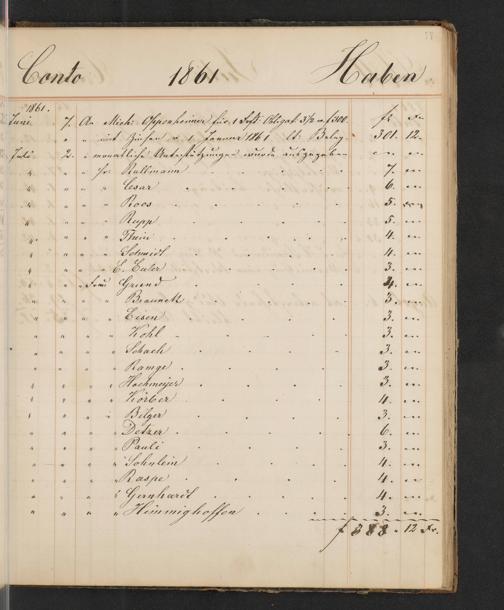 Conto 1861 Haben
1861. f Xr
Juni 7. An Mich: Oppenheimer für 1 Frkft. Obligat. 3½ % f 300
" " " mit Zinsen v. 1 Januar 1861 lt. Beleg 301. 12.
Juli 2. " monatliche Unterstützungen wurde ausgegeben " "
" " " " Fr. Rullmann . . . 7. "
" " " " Cesar . . . 6. "
" " " " Roos . . . 5. "
" " " " Rupp . . . 5. "
" " " " Thein . . . 4. "
" " " " Schmidt . . . 4. "
" " " " C. Euler . . . 3. "
" " " Frau Grund . . . 4. "
" " " " Brannett . . . 3. "
" " " " Eisen . . . 3. "
" " " " Kohl . . . 3. "
" " " " Schach . . . 3. "
" " " " Ramge . . . 3. "
" " " " Hochmeyer . . . 3. "
" " " " Körber . . . 4. "
" " " " Bilger . . . 3. "
" " " " Detzer . . . 6. "
" " " " Pauli . . . 3. "
" " " " Sohnlein . . . 4. "
" " " " Raspe . . . 4. "
" " " " Gernhardt . . . 4. "
" " " " Himmighoffen . . . 3. "
f 388. 12 Xr.